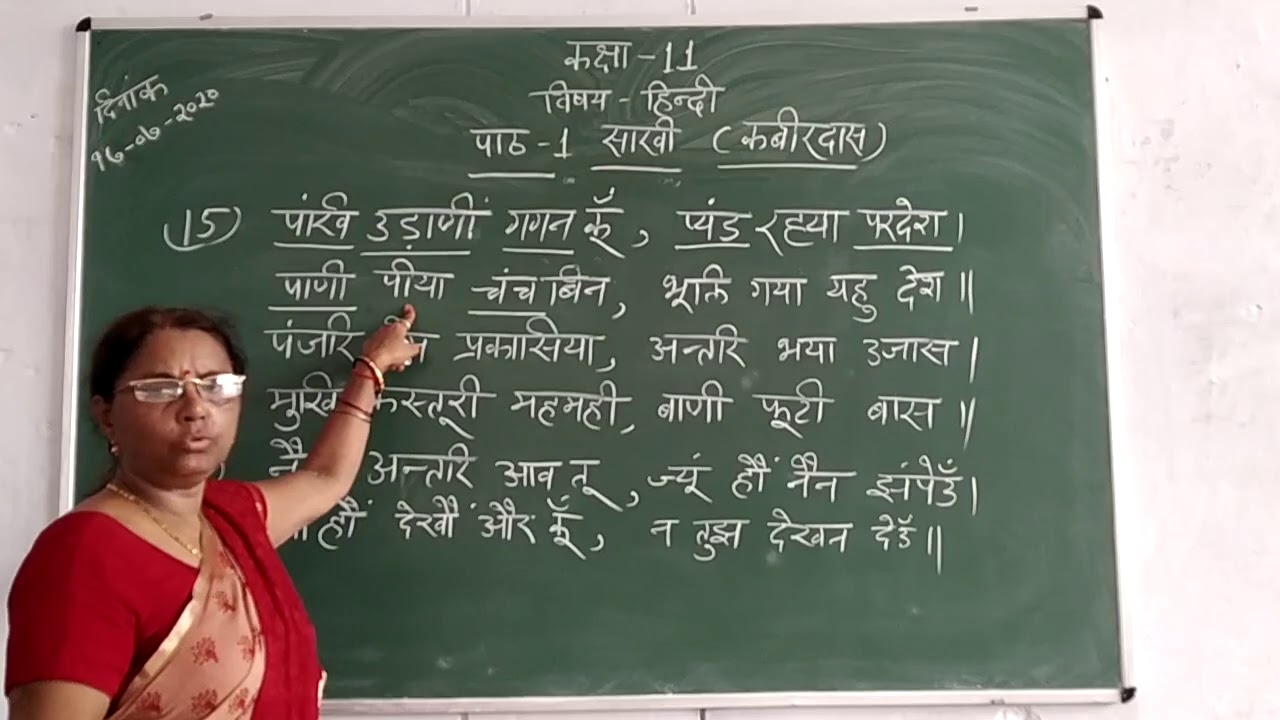 दिनांक
१६-०७-२०२०
कक्षा - 11
विषय - हिन्दी
पाठ - 1 साखी (कबीरदास)
15) पांखि उड़ाणीं गगन कूँ, प्यंड रह्या परदेश।
पाणी पीया चंच बिन, भूलि गया यहु देश॥
पंजरि प्रकासिया, अन्तरि भया उजास।
मुखि कस्तूरी महमही, बाणी फूटी बास॥
अन्तरि आव तू, ज्यूं हौं नैन झंपेउँ।
हौं देखौं और कूँ, न तुझ देखन देउँ॥